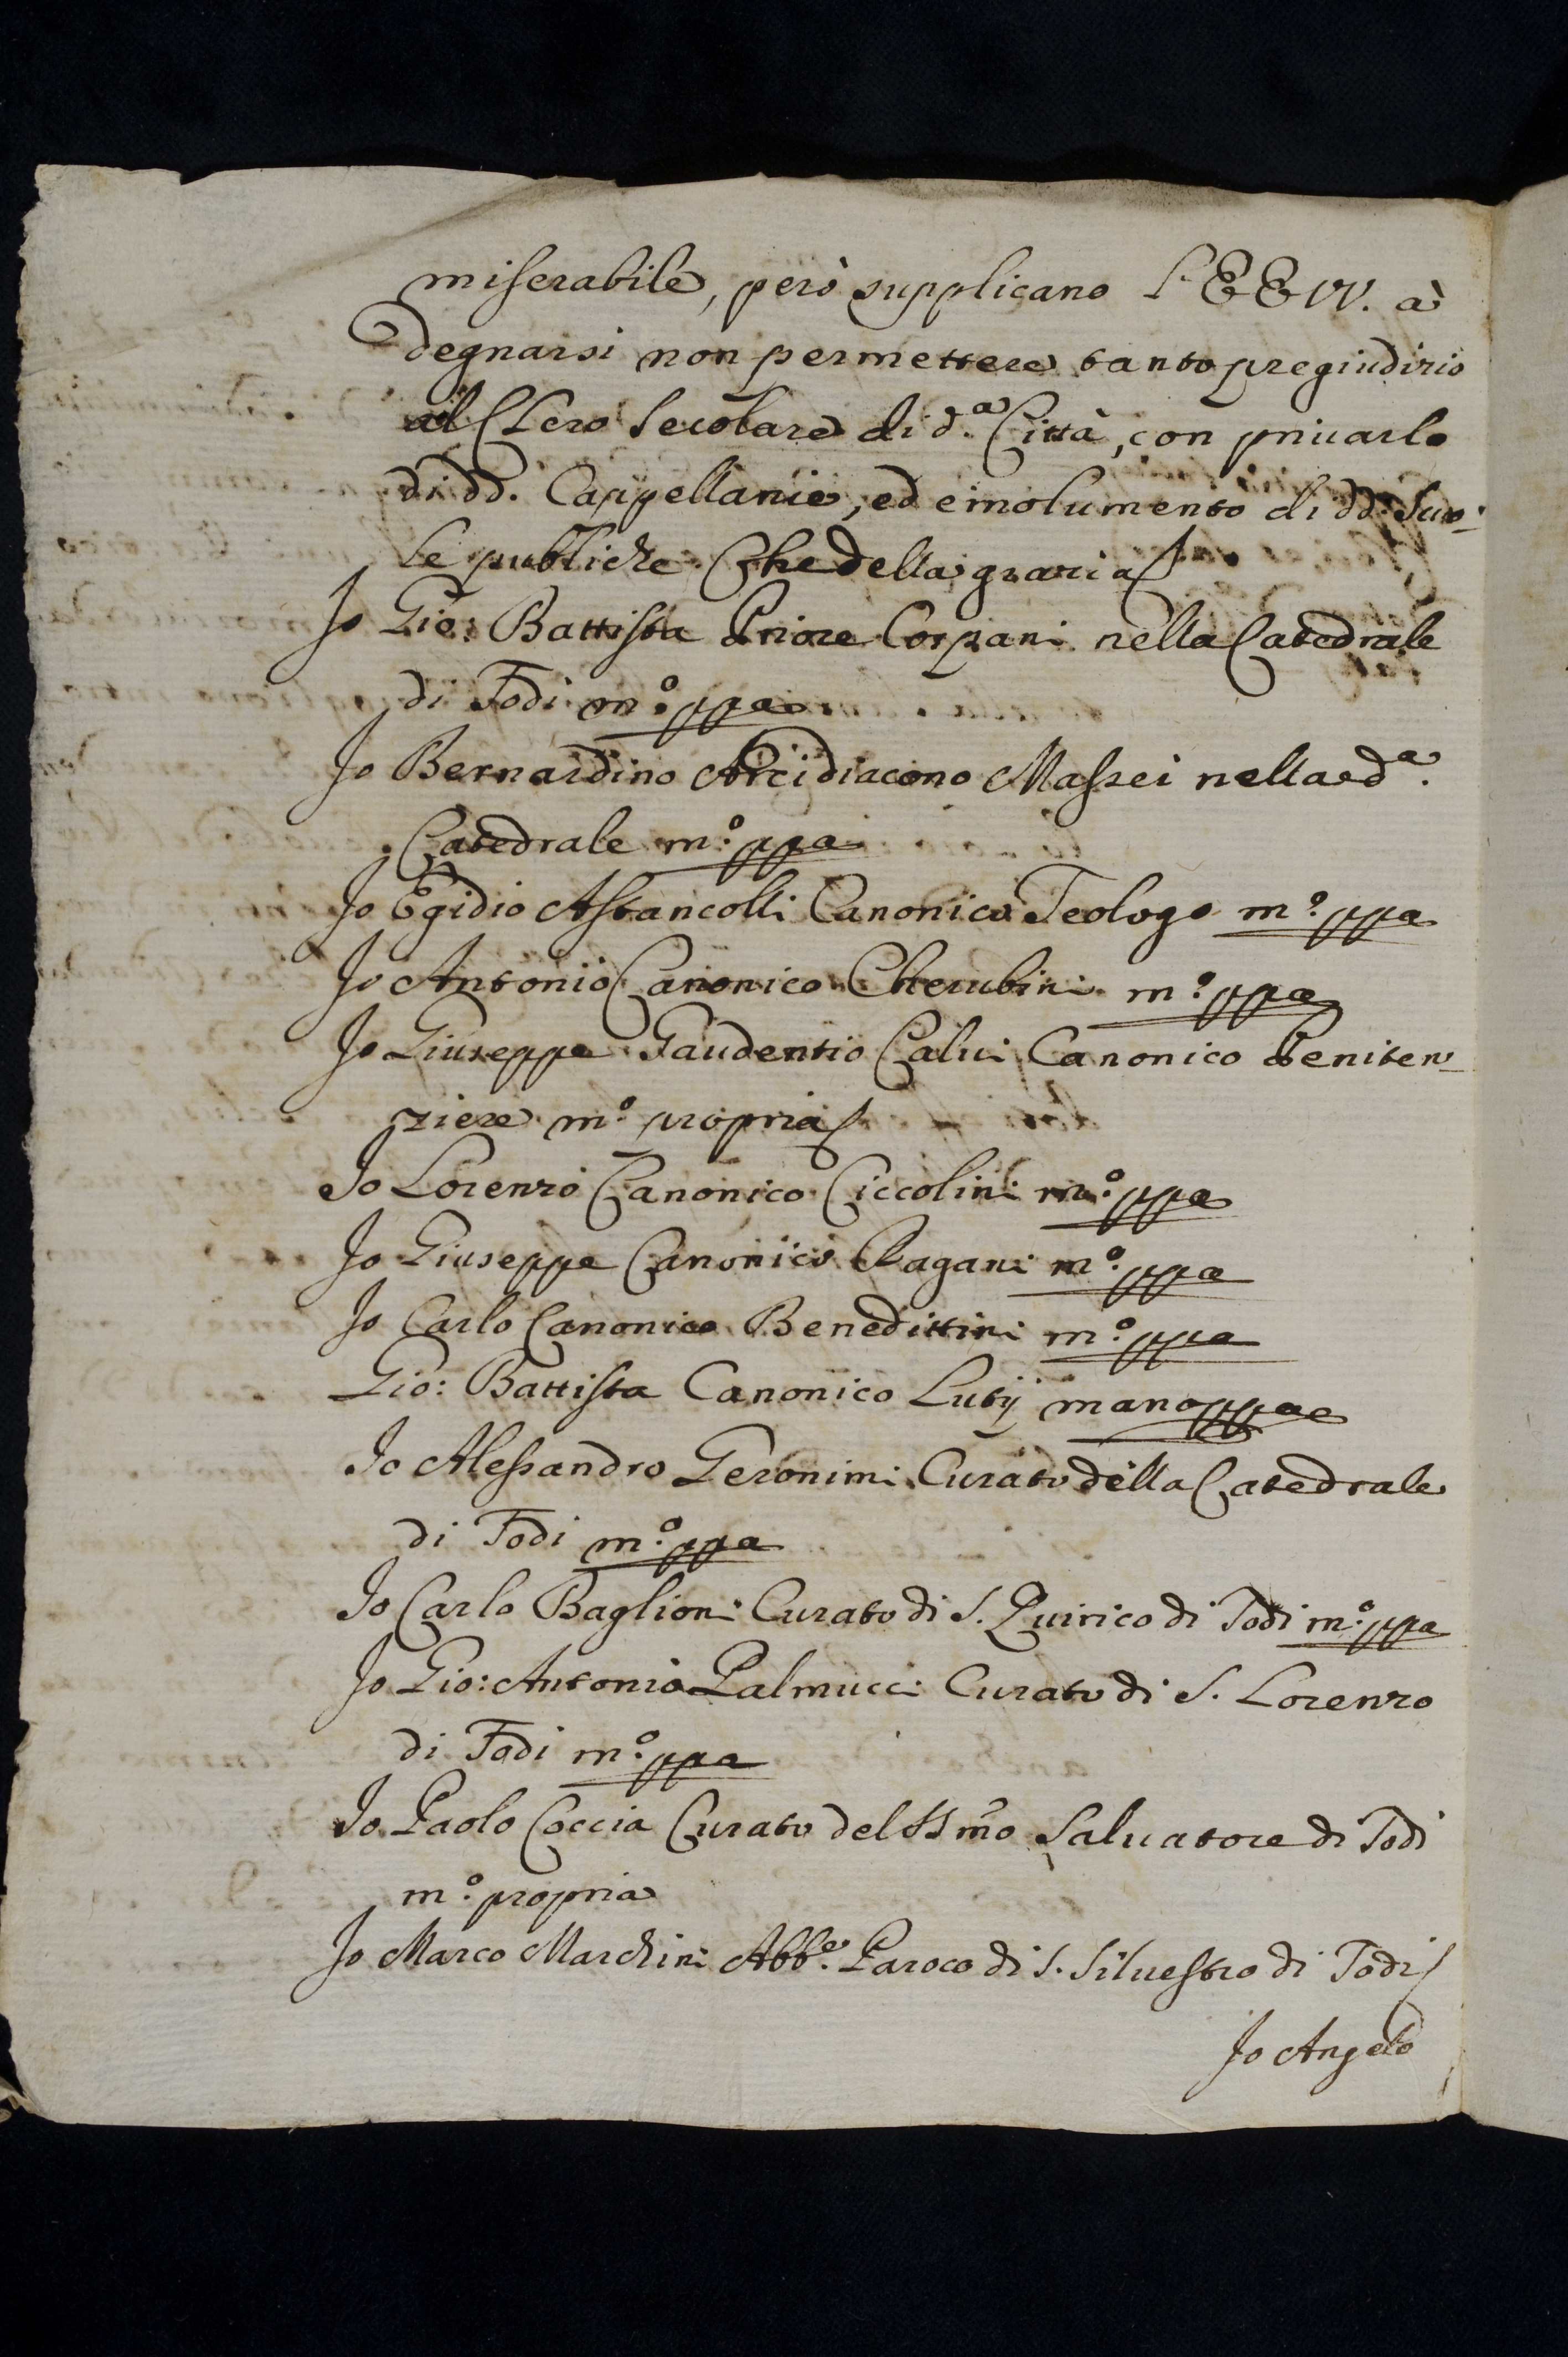 miserabile, però supplicano l'EEVV. à
degnarsi non permettere tanto pregiudizio
al Clero Secolare di d.ª Città, con privarlo
di dd. Cappellanie, ed emolumento di dd. Scuo-
le publiche. Che della grazia
Io Gio: Battista Priore Corpani nella Catedrale
di Todi m.º ppa
Io Bernardino Arcidiacono Massei nella d.ª
Catedrale m.º ppa
Io Egidio Astancolli Canonico Teologo m.º ppa
Io Antonio Canonico Cherubini m.º ppa
Io Giuseppe Gaudentio Calvi Canonico Peniten-
ziere m.º propria
Io Lorenzo Canonico Ciccolini m.º ppa
Io Giuseppe Canonico Pagani m.º ppa
Io Carlo Canonico Benedittini m.º ppa
Gio: Battista Canonico Lutij mano ppae
Io Alessandro Geronimi Curato della Catedrale
di Todi m.º ppa
Io Carlo Baglioni Curato di S. Quirico di Todi m.º ppa
Io Gio: Antonio Palmucci Curato di S. Lorenzo
di Todi m.º ppa
Io Paolo Coccia Curato del SSmo Salvatore di Todi
m.º propria
Io Marco Marchini Abb.e Paroco di S. Silvestro di Todi
Io Angelo